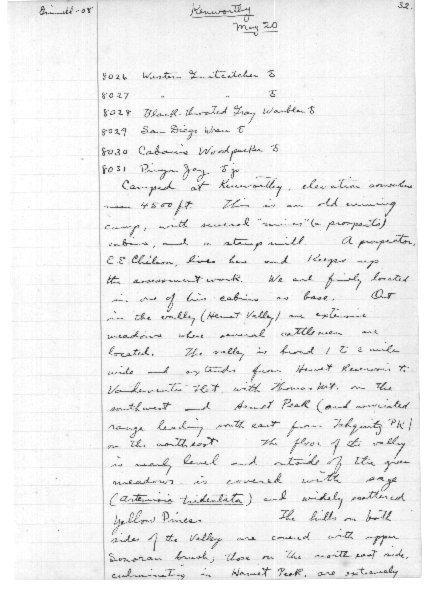 Grinnell-08
Kenworthy
32.
May 20
8026 Western Gnatcatcher ♂
8027 " " ♂
8028 Black-throated Gray Warbler ♂
8029 San Diego Wren ♂
8030 Cabanis Woodpecker ♂
8031 Pinyon Jay ♂ jv
Camped at Kenworthy, elevation somewhere
near 4500 ft. This is an old mining
camp, with several "mines" (= prospects)
cabins, and a stamp mill. A prospector,
C.E. Chilson, lives here and keeps up
the assessment work. We are finely located
in one of his cabins as base. Out
in the valley (Hemet Valley) are extensive
meadows where several cattlemen are
located. The valley is broad 1 to 2 miles
wide and extends from Hemet Reservoir to
Vandeventer Flat, with Thomas Mt. on the
southwest and Hemet Peak (and associated
range leading south east from Tahquitz Pk)
on the northeast. The floor of the valley
is nearly level and outside of the green
meadows is covered with sage
(Artemisia tridentata) and widely scattered
Yellow Pines. The hills on both
sides of the Valley are covered with upper
Sonoran brush; those on the north east side,
culminating in Hemet Peak, are extremely